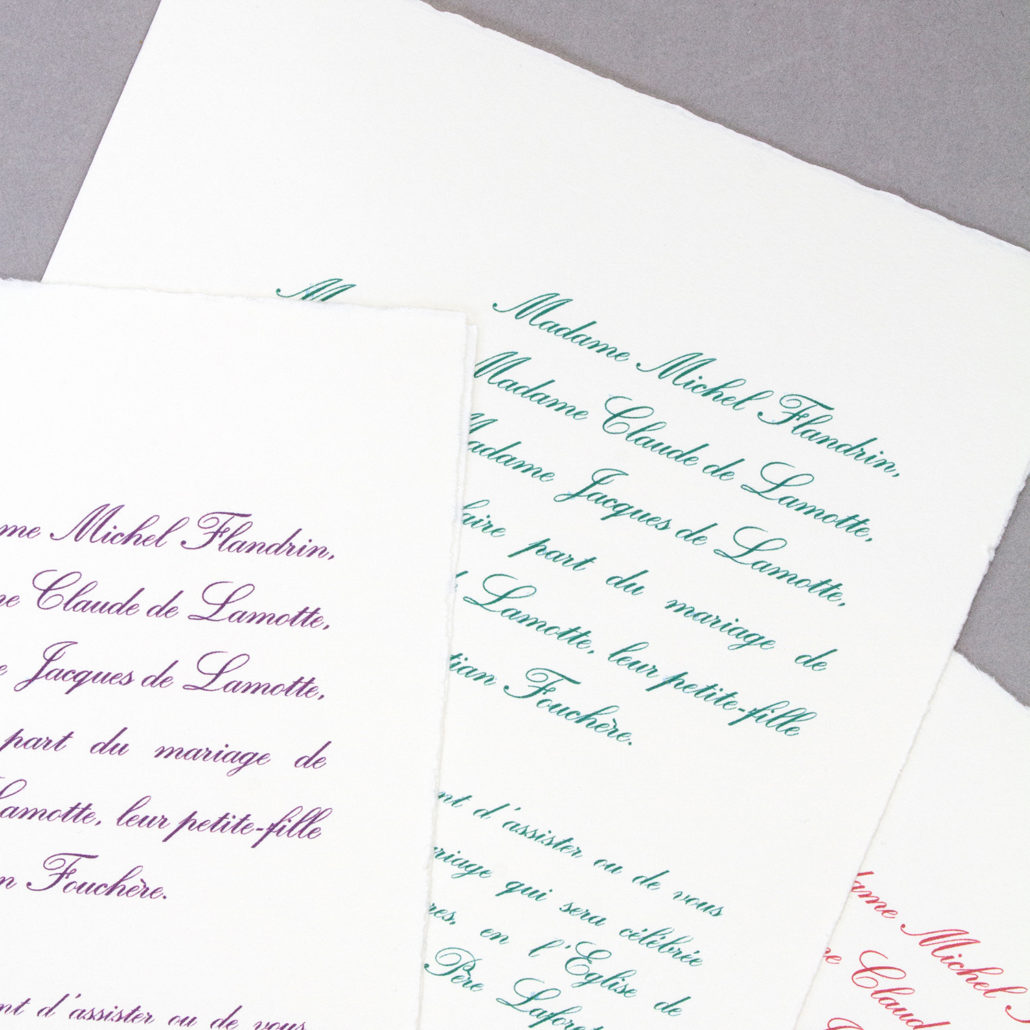 Madame Michel Flandrin,
Madame Claude de Lamotte,
Madame Jacques de Lamotte,
faire part du mariage de
Lamotte, leur petite-fille
Fouchère.
d'assister ou de vous
qui sera célébrée
en l'Eglise de
Père
Michel Flandrin,
Claude de Lamotte,
Jacques de Lamotte,
part du mariage de
Lamotte, leur petite-fille
Fouchère.
d'assister ou de vous
Michel